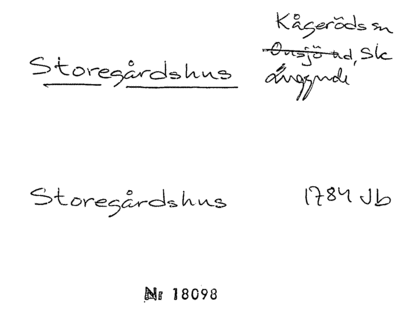 Kågeröds sn
Storegårdshus
Onsjö hd, Sk
ånggnde
Storegårdshus 1784 Jb
Nr 18098